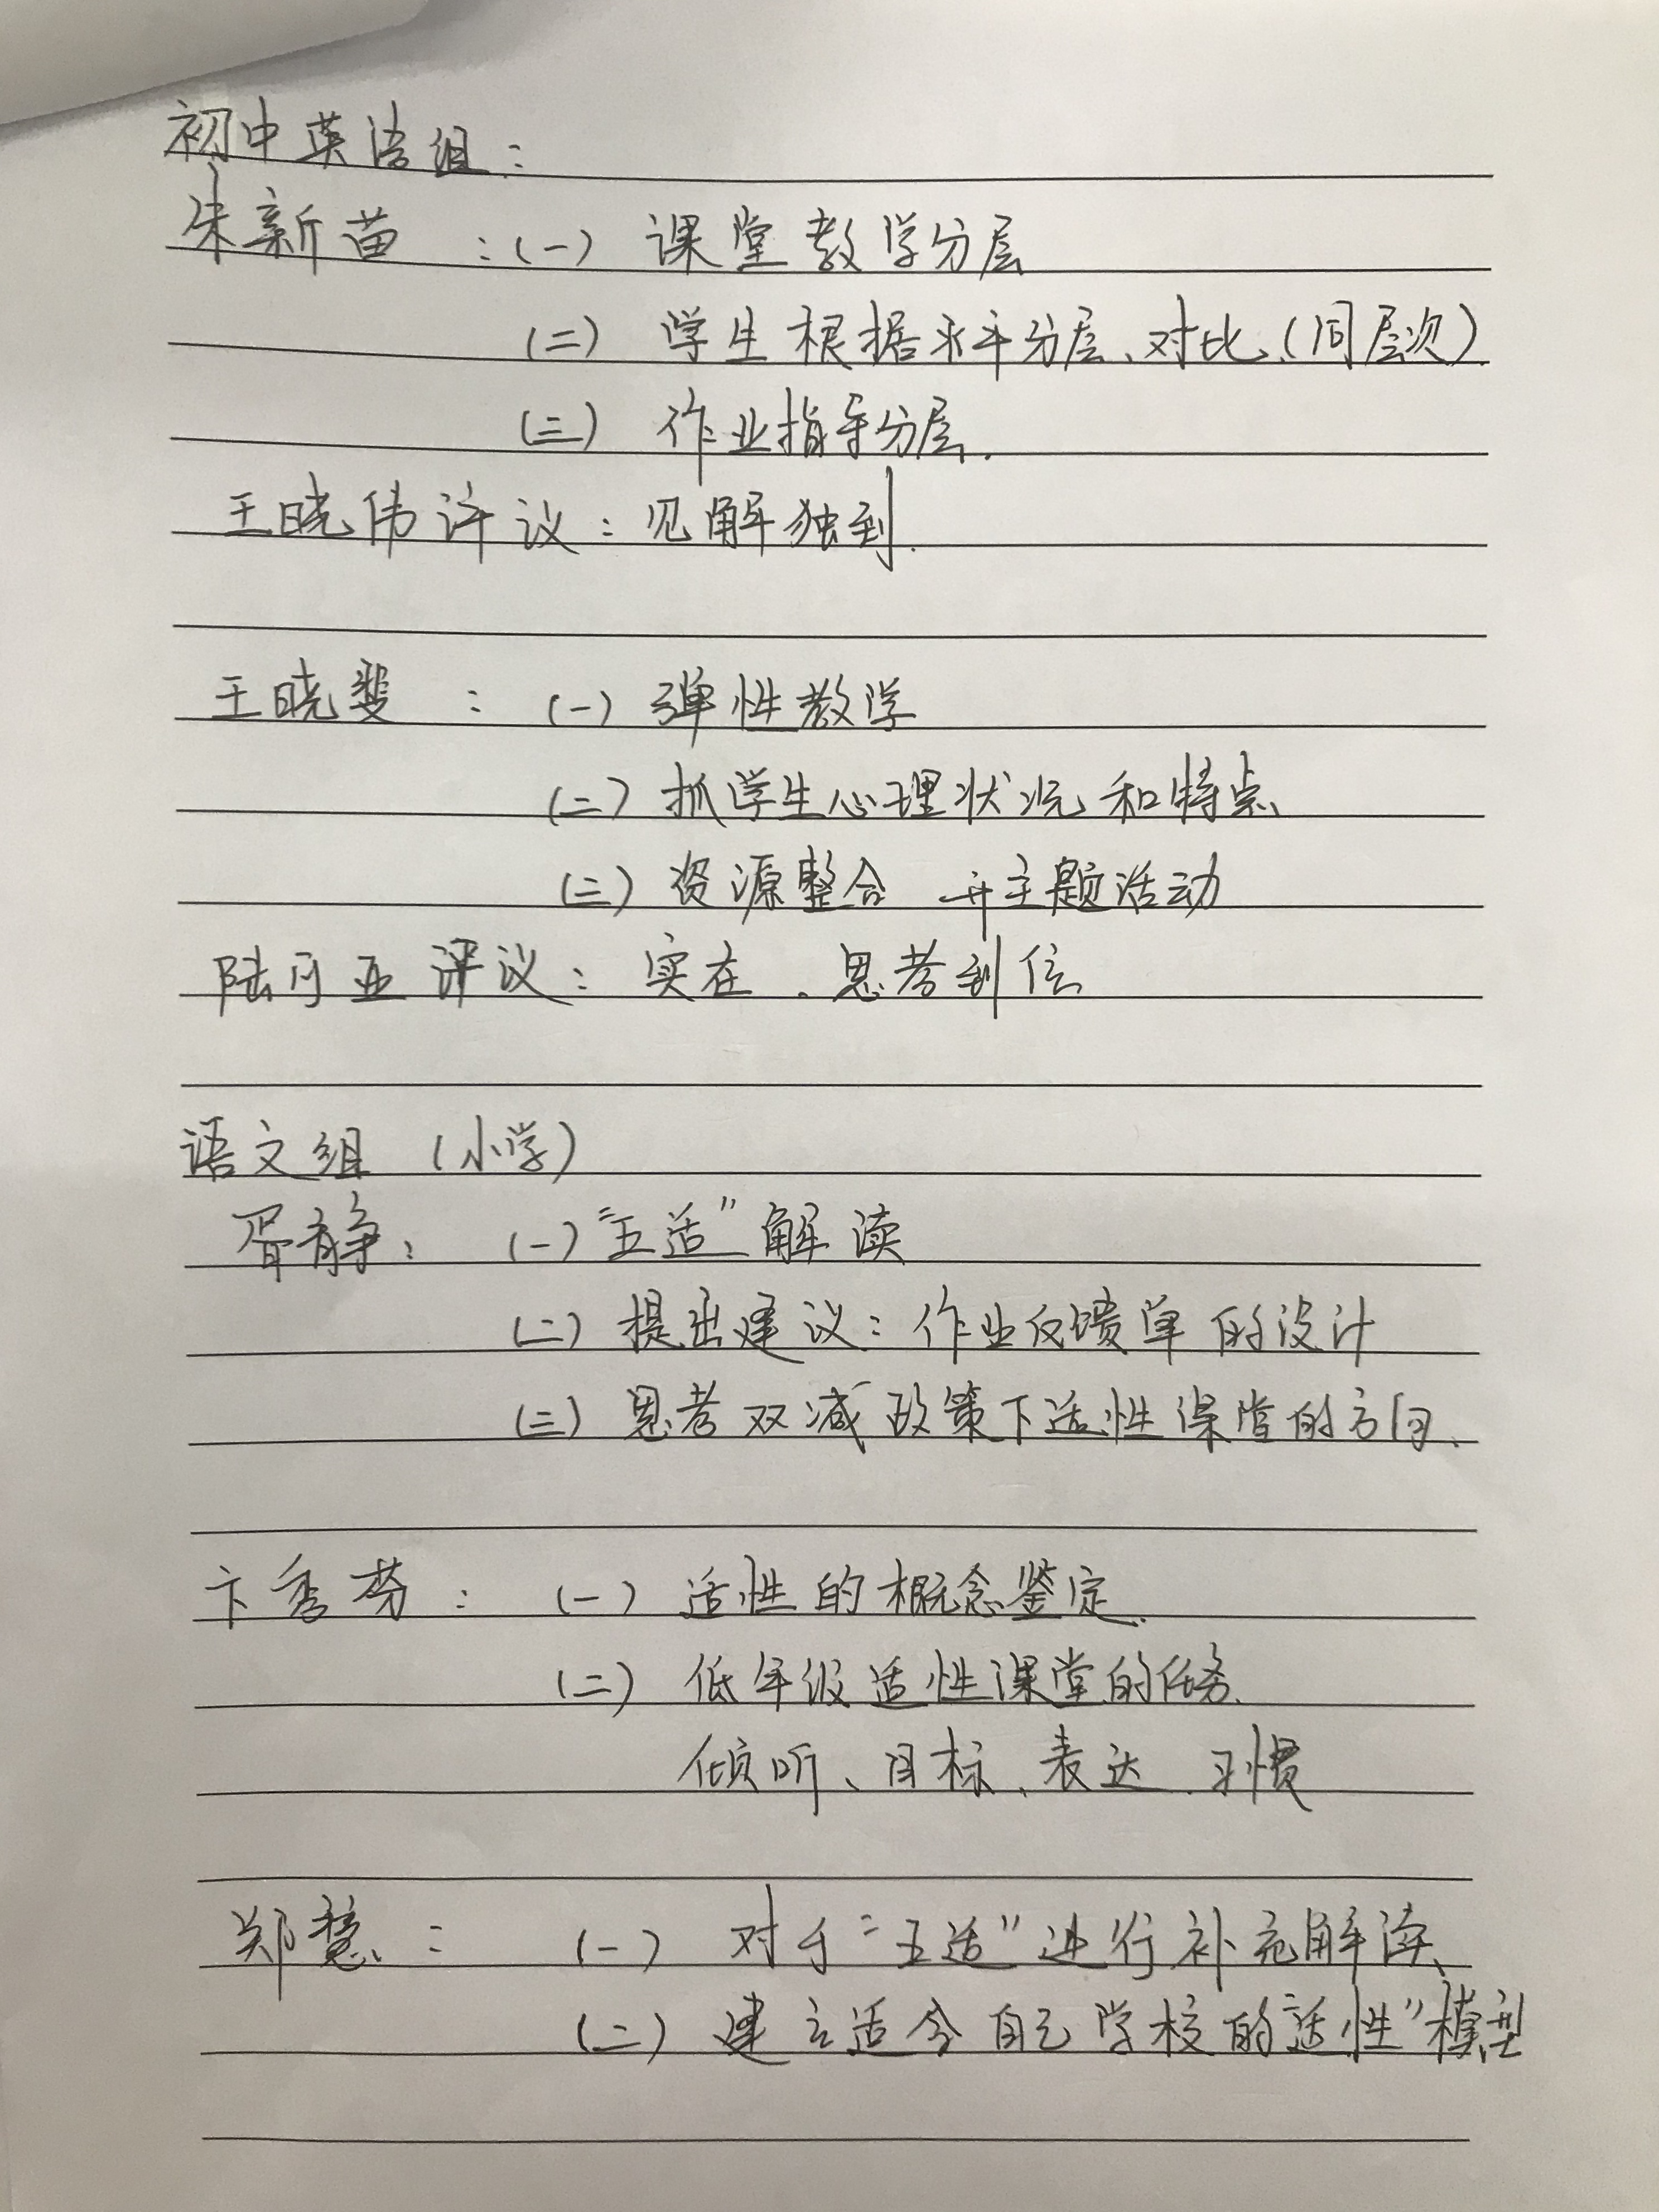 初中英语组：
朱新苗：（一）课堂教学分层
（二）学生根据水平分层、对比、（同层次）
（三）作业指导分层.
王晓伟评议：见解独到.
王晓斐：（一）弹性教学
（二）抓学生心理状况和特点、
（三）资源整合 开主题活动
陆可亚评议：实在、思考到位
语文组（小学）
胥静：（一）“五适”解读
（二）提出建议：作业反馈单的设计
（三）思考双减政策下适性课堂的方向、
卞秀芬：（一）适性的概念鉴定.
（二）低年级适性课堂的任务、
倾听、目标、表达、习惯
郑慧：（一）对于“五适”进行补充解读、
（二）建立适合自己学校的“适性”模型